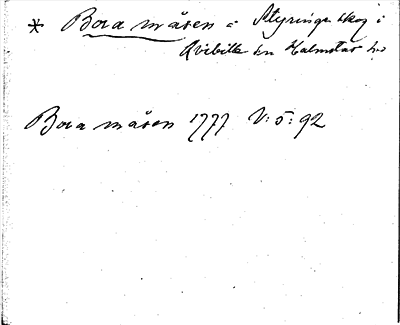 * Bora måsen å Styringe skog i
Qvibille sn Halmstad hd
Bora måsen 1777 V:5:92